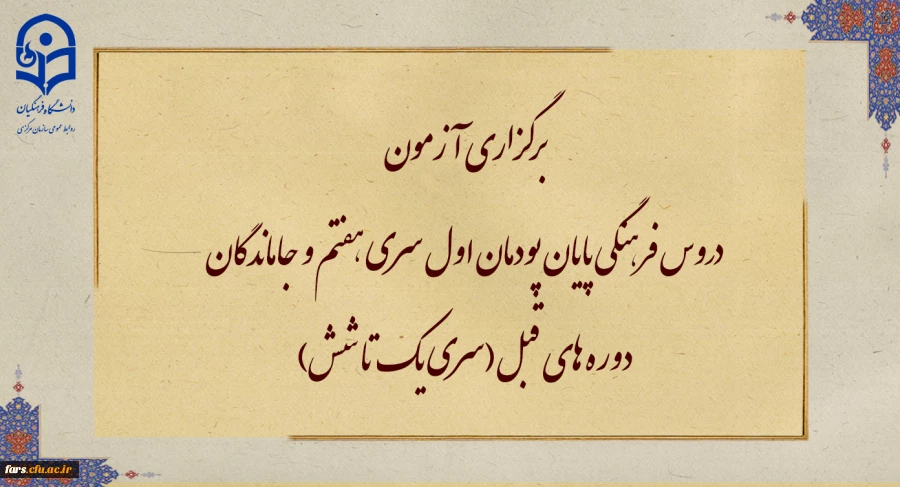 دانشگاه فرهنگیان
روابط عمومی سازمان مرکزی
برگزاری آزمون
دروس فرهنگی پایان پودمان اول سری هفتم و جاماندگان
دوره های قبل (سری یک تا شش)
fars.cfu.ac.ir